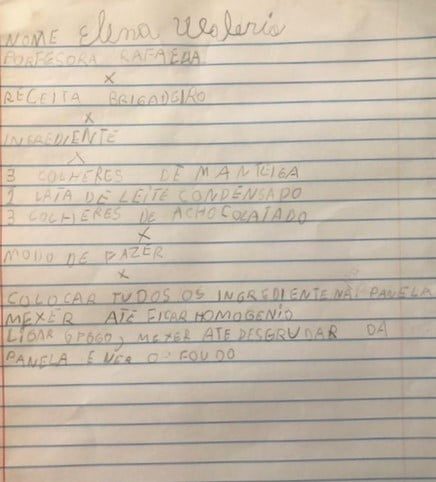 NOME Elena Valerio
PORFESORA RAFAELA
X
RECEITA BRIGADEIRO
X
INGREDIENTE
X
3 COLHERES DE MANTEIGA
1 LATA DE LEITE CONDENSADO
3 COLHERES DE ACHOCOLATADO
X
MODO DE FAZER
X
COLOCAR TUDOS OS INGREDIENTE NA PANELA
MEXER ATÉ FICAR HOMOGENIO
LIGAR O FOGO, MEXER ATE DESGRUDAR DA
PANELA E VER O FOUDO